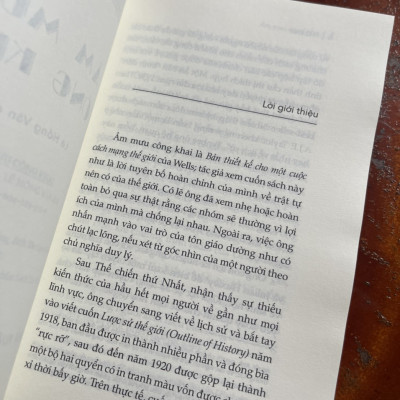 Lời giới thiệu
Âm mưu công khai là Bản thiết kế cho một cuộc
cách mạng thế giới của Wells; tác giả xem cuốn sách này
như là lời tuyên bố hoàn chỉnh của mình về trật tự
nên có của thế giới. Có lẽ ông đã xem nhẹ hoặc hoàn
toàn bỏ qua sự thật rằng các nhóm sẽ thường vì lợi
ích của mình mà chống lại nhau. Ngoài ra, việc ông
nhấn mạnh vào vai trò của tôn giáo dường như có
chút lạc lõng, nếu xét từ góc nhìn của một người theo
chủ nghĩa duy lý.
Sau Thế chiến thứ Nhất, nhận thấy sự thiếu
kiến thức của hầu hết mọi người về gần như mọi
lĩnh vực, ông chuyển sang viết về lịch sử và bắt tay
vào viết cuốn Lược sử thế giới (Outline of History) năm
1918, ban đầu được in thành nhiều phần và đóng bìa
"rực rỡ", sau đó đến năm 1920 được gộp lại thành
một bộ hai quyển có in tranh màu vốn được
xỉ thời bấy giờ. Trên thực tế,